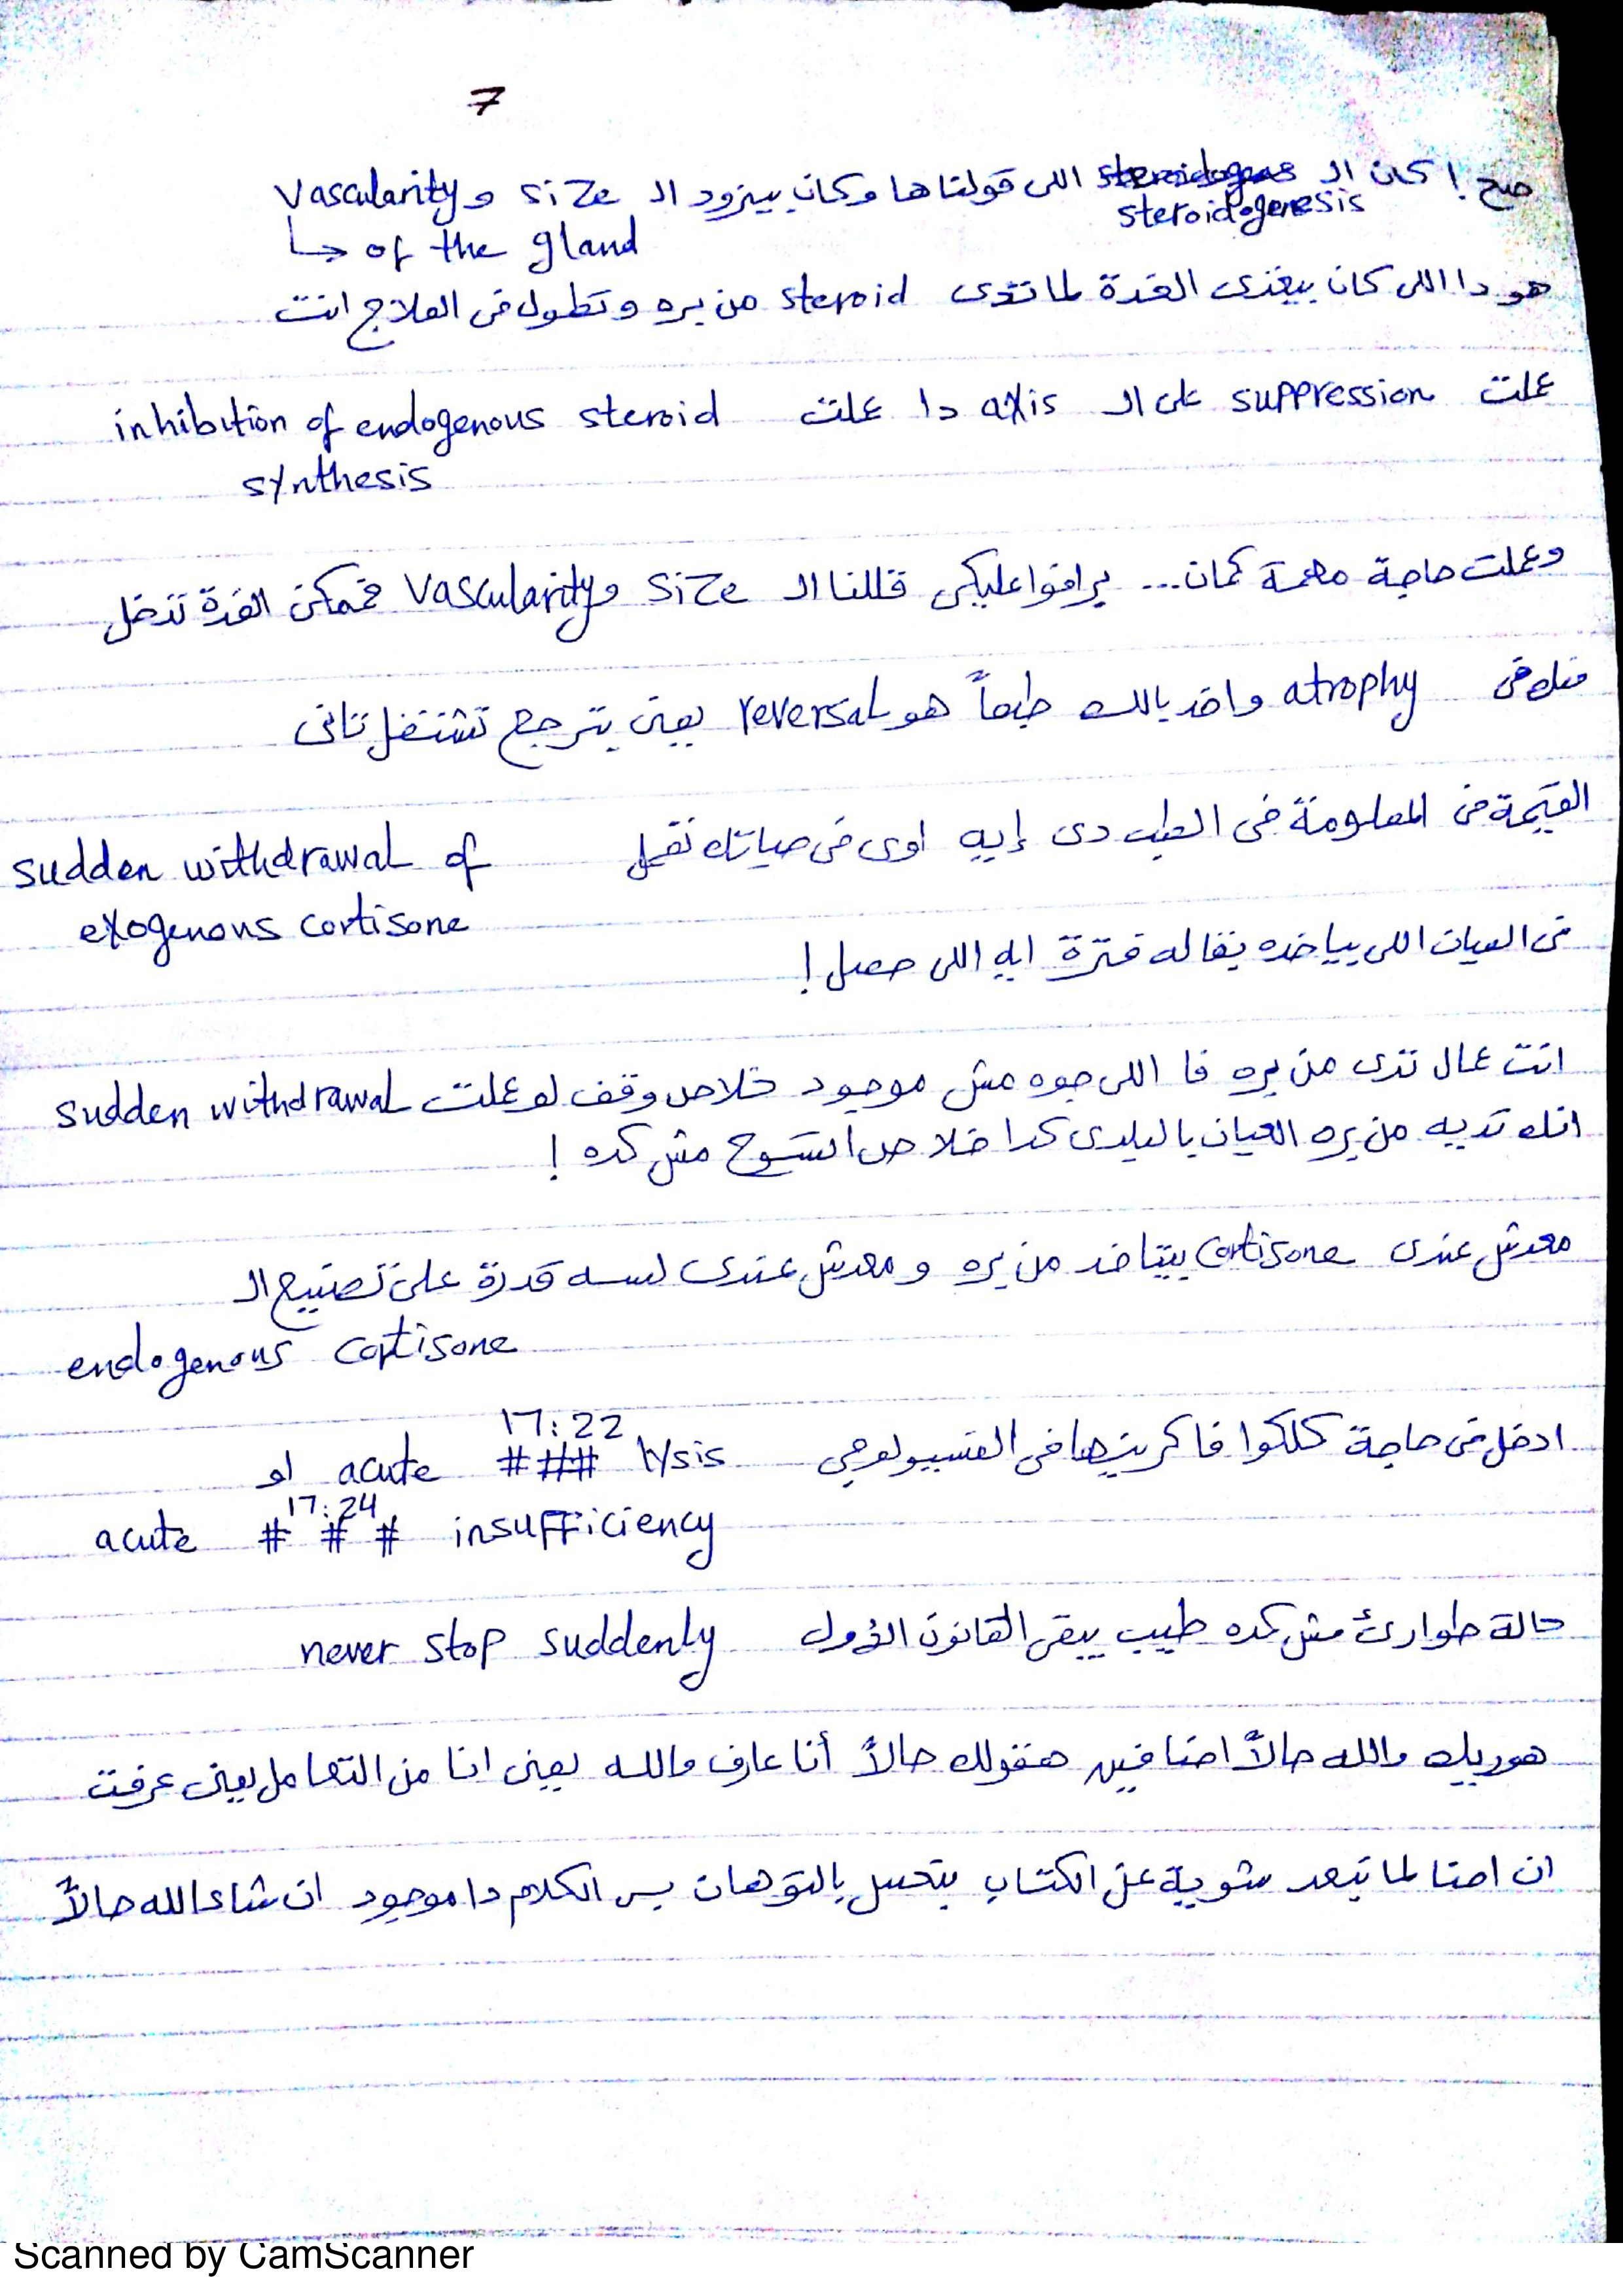 7
صح! كان ال steroidogenesis اللى قولناها وكان بيزود ال size و Vascularity
of the gland
هو دا اللى كان بيغذى الغدة لما تدى steroid من بره وتطول فى العلاج انت
عملت suppression على ال axis دا عملت inhibition of endogenous steroid
synthesis
وعملت حاجة مهمة كمان... برافوا عليكى قللنا ال size و Vascularity فممكن الغدة تدخل
منك فى atrophy واخد بالك طبعاً هو reversal يعنى بترجع تشتغل تانى
القيمة فى المعلومة فى الطب دى إيه اوى فى حياتك تعمل sudden withdrawal of
exogenous cortisone
فى العيان اللى بياخده بقاله فترة ايه اللى حصل!
انت عمال تدى من بره فا اللى جوه مش موجود خلاص وقف لو عملت sudden withdrawal
انك تديه من بره العيان بالبلدى كدا خلاص اتسوح مش كده!
معدش عندى cortisone بيتاخد من بره و معدش عندى لسه قدرة على تصنيع ال
endogenous cortisone
17:22
ادخل فى حاجة كلكوا فاكرينها فى الفسيولوجى acute ### lysis او
17:24
acute # # # insufficiency
حالة طوارئ مش كده طيب يبقى القانون الأول never stop suddenly
هوريك والله حالاً احنا فين هنقولك حالاً أنا عارف والله يعنى انا من التعامل يعنى عرفت
ان احنا لما نبعد شوية عن الكتاب بتحس بالتوهان بس الكلام دا موجود ان شاء الله حالاً
Scanned by CamScanner